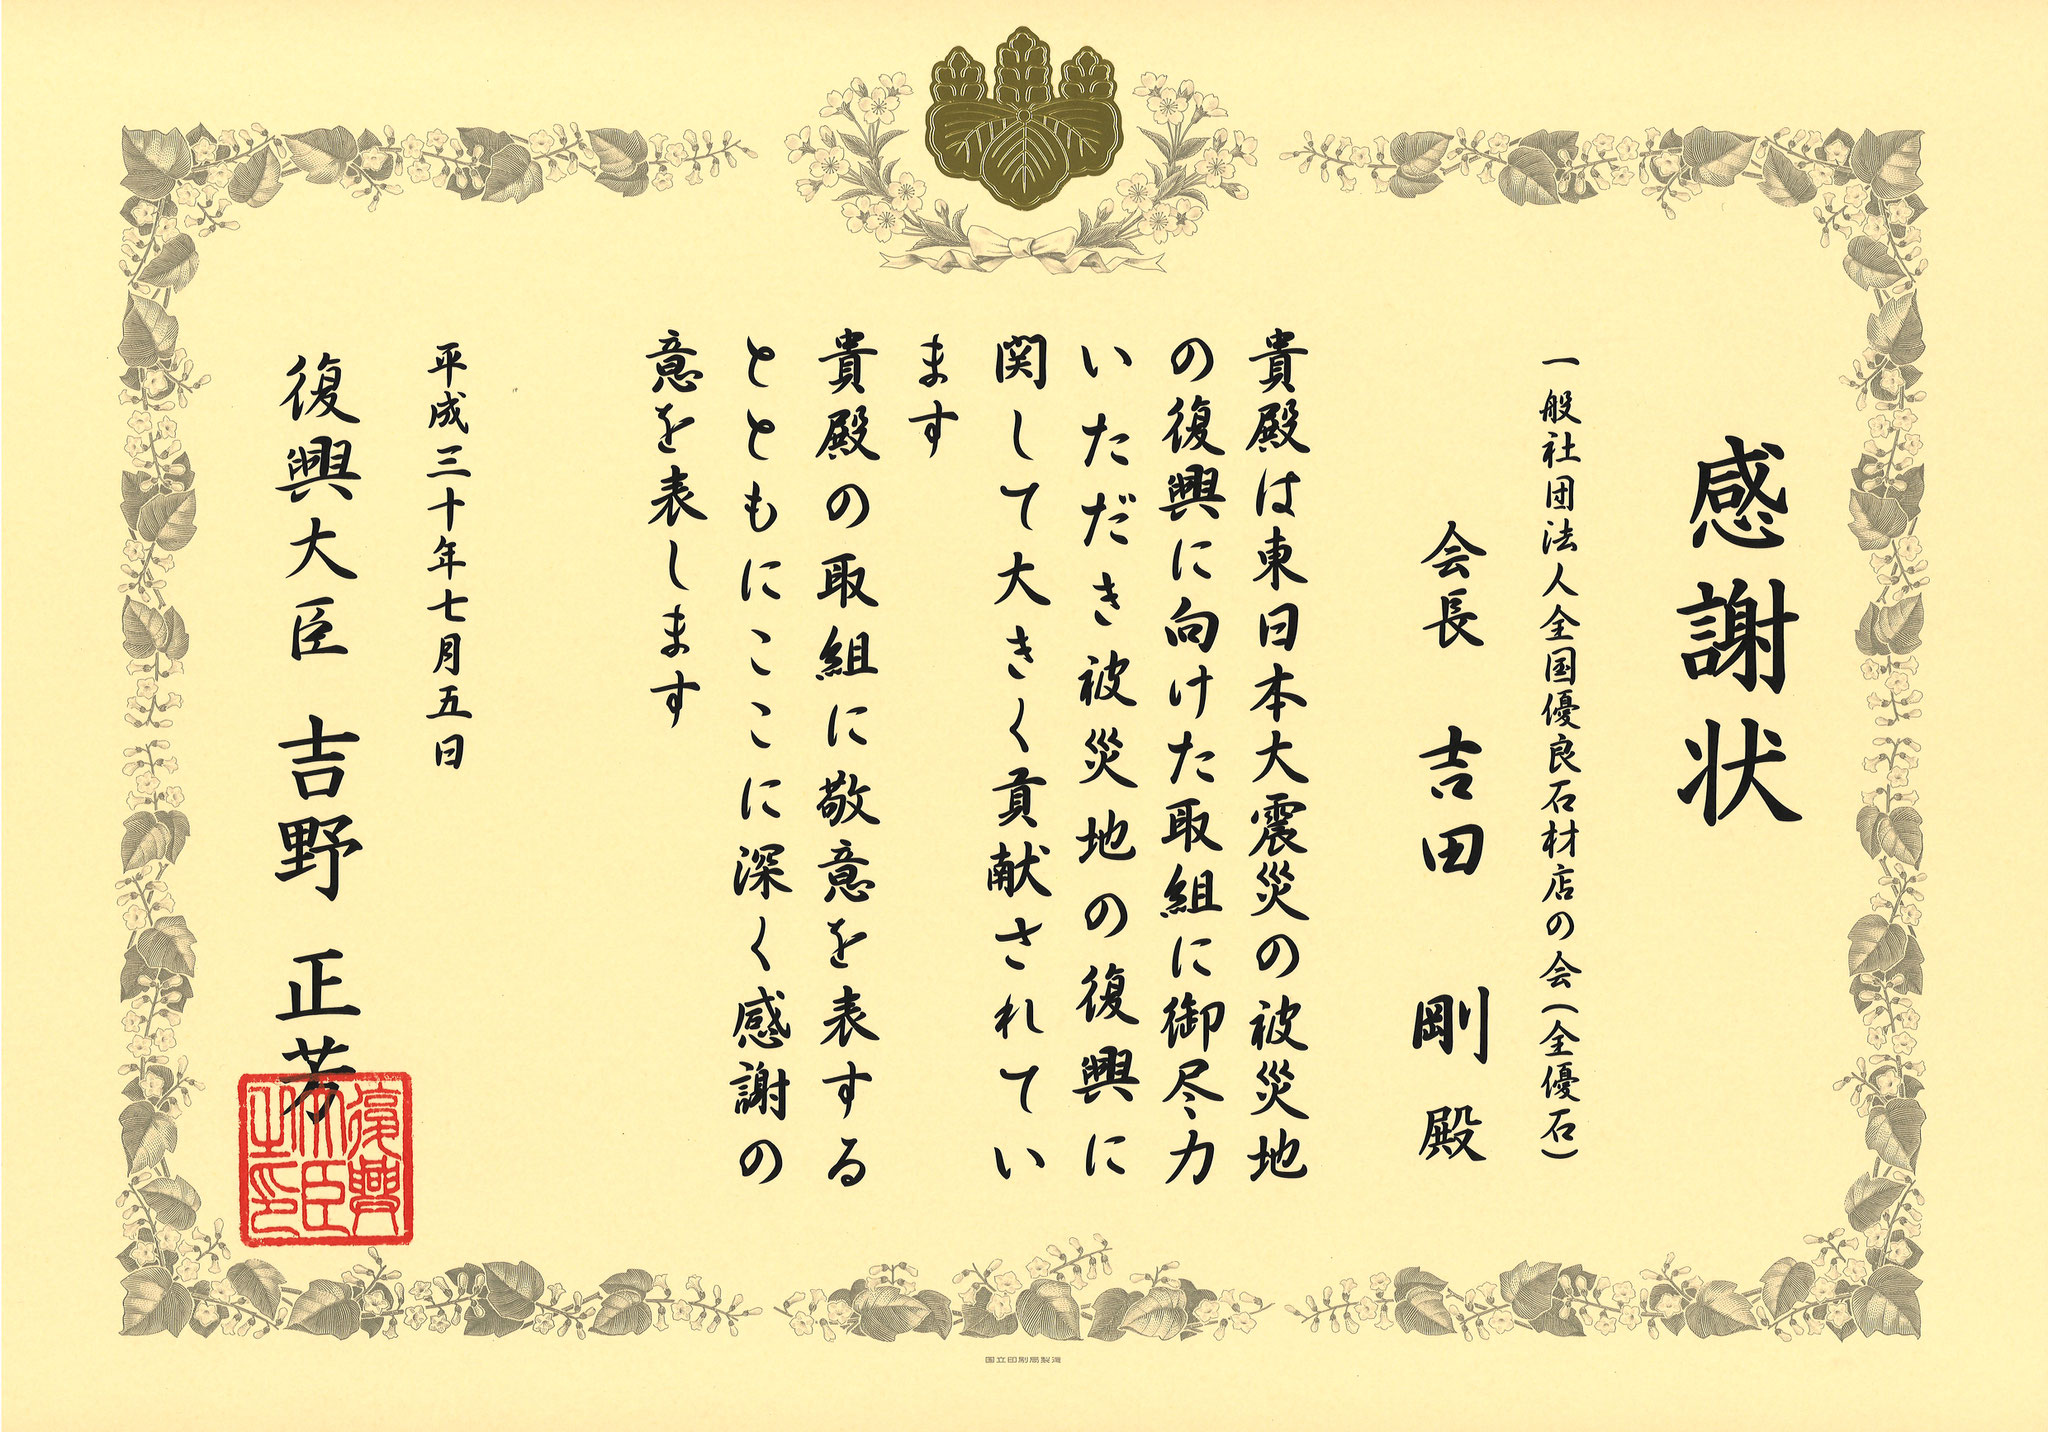 感謝状
一般社団法人全国優良石材店の会(全優石)
会長 吉田 剛 殿
貴殿は東日本大震災の被災地
の復興に向けた取組に御尽力
いただき被災地の復興に
関して大きく貢献されてい
ます
貴殿の取組に敬意を表する
とともにここに深く感謝の
意を表します
平成三十年七月五日
復興大臣 吉野 正芳
復興
大臣
之印
国立印刷局製造